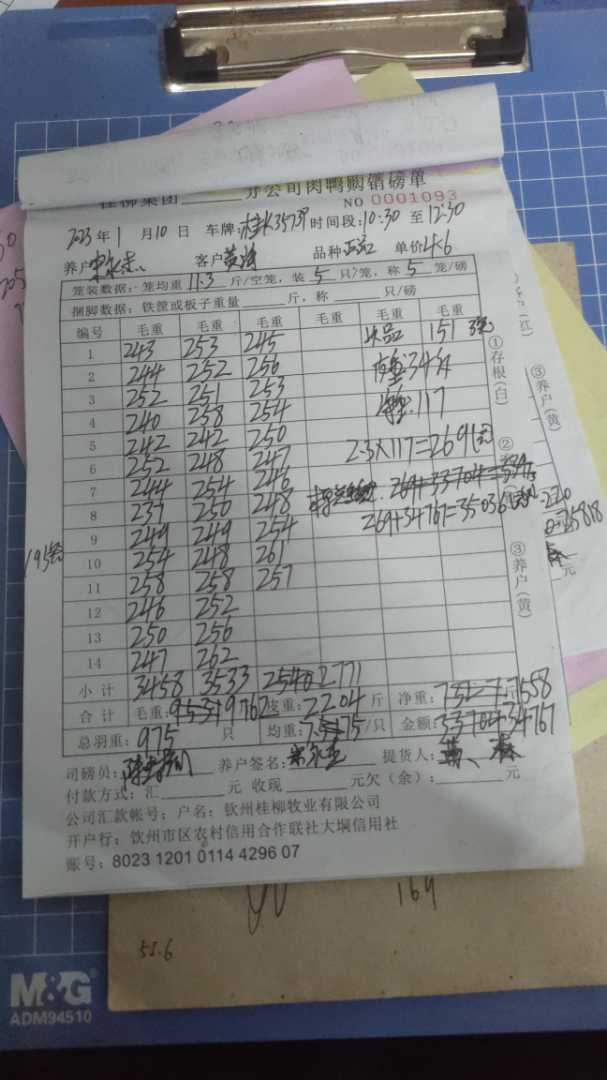 桂柳集团 分公司肉鸭购销磅单
NO 0001093
2023年1月10日 车牌: 时间段:10:30至12:30
养户: 客户 品种 单价4.6
笼装数据:笼均重11.3斤/空笼,装5只/笼,称5笼/磅
捆脚数据:铁筐或板子重量 斤,称 只/磅
编号 毛重 毛重 毛重 毛重 毛重 毛重
1 243 253 245 次品 151
2 244 252 256
3 252 251 253 117
4 240 258 254
5 242 242 250 2.3×117=269元
6 252 248 247
7 244 254 246
8 237 250 248 269+34767=35036
9 249 249 254
10 254 248 261
11 258 258 257
12 246 252
13 250 256
14 247 262
小计 3458 3533 2771
合计 毛重:9762 皮重:2204斤 净重:7558
总羽重:975只 均重: /只 金额:34767
司磅员: 养户签名: 提货人:
付款方式:汇 元 收现 元欠(余): 元
公司汇款帐号:户名:钦州桂柳牧业有限公司
开户行:钦州市区农村信用合作联社大垌信用社
账号:8023 1201 0114 4296 07
①存根(白)
②
③养户(黄)
③养户(黄)
元
169
51.6
M&G
ADM94510